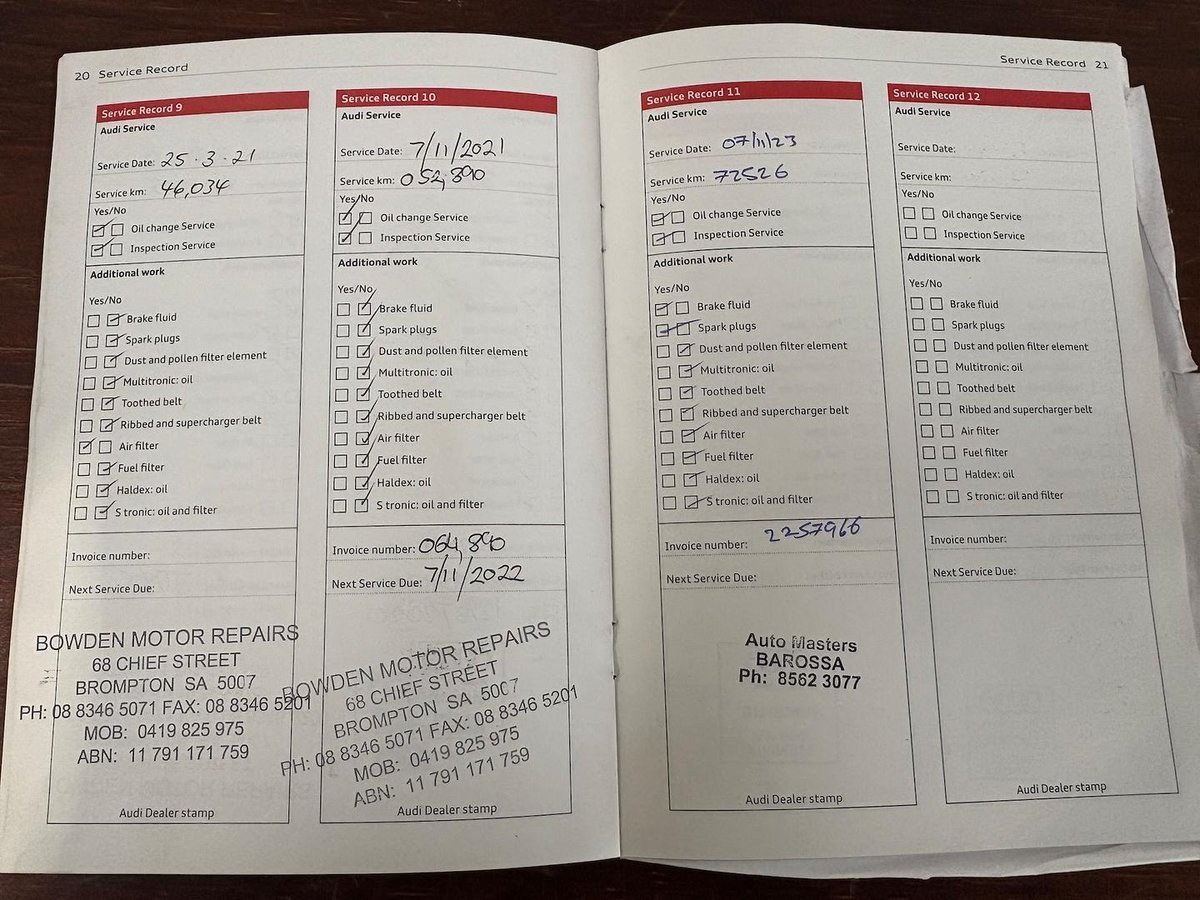 20 Service Record
Service Record 9
Audi Service
Service Date: 25.3.21
Service km: 46,034
Yes/No
Oil change Service
Inspection Service
Additional work
Yes/No
Brake fluid
Spark plugs
Dust and pollen filter element
Multitronic: oil
Toothed belt
Ribbed and supercharger belt
Air filter
Fuel filter
Haldex: oil
S tronic: oil and filter
Invoice number:
Next Service Due:
BOWDEN MOTOR REPAIRS
68 CHIEF STREET
BROMPTON SA 5007
PH: 08 8346 5071 FAX: 08 8346 5201
MOB: 0419 825 975
ABN: 11 791 171 759
Audi Dealer stamp
Service Record 10
Audi Service
Service Date: 7/11/2021
Service km: 052,890
Yes/No
Oil change Service
Inspection Service
Additional work
Yes/No
Brake fluid
Spark plugs
Dust and pollen filter element
Multitronic: oil
Toothed belt
Ribbed and supercharger belt
Air filter
Fuel filter
Haldex: oil
S tronic: oil and filter
Invoice number: 064,890
Next Service Due: 7/11/2022
BOWDEN MOTOR REPAIRS
68 CHIEF STREET
BROMPTON SA 5007
PH: 08 8346 5071 FAX: 08 8346 5201
MOB: 0419 825 975
ABN: 11 791 171 759
Audi Dealer stamp
Service Record 21
Service Record 11
Audi Service
Service Date: 07/11/23
Service km: 72526
Yes/No
Oil change Service
Inspection Service
Additional work
Yes/No
Brake fluid
Spark plugs
Dust and pollen filter element
Multitronic: oil
Toothed belt
Ribbed and supercharger belt
Air filter
Fuel filter
Haldex: oil
S tronic: oil and filter
Invoice number: 2257966
Next Service Due:
Auto Masters
BAROSSA
Ph: 8562 3077
Audi Dealer stamp
Service Record 12
Audi Service
Service Date:
Service km:
Yes/No
Oil change Service
Inspection Service
Additional work
Yes/No
Brake fluid
Spark plugs
Dust and pollen filter element
Multitronic: oil
Toothed belt
Ribbed and supercharger belt
Air filter
Fuel filter
Haldex: oil
S tronic: oil and filter
Invoice number:
Next Service Due:
Audi Dealer stamp